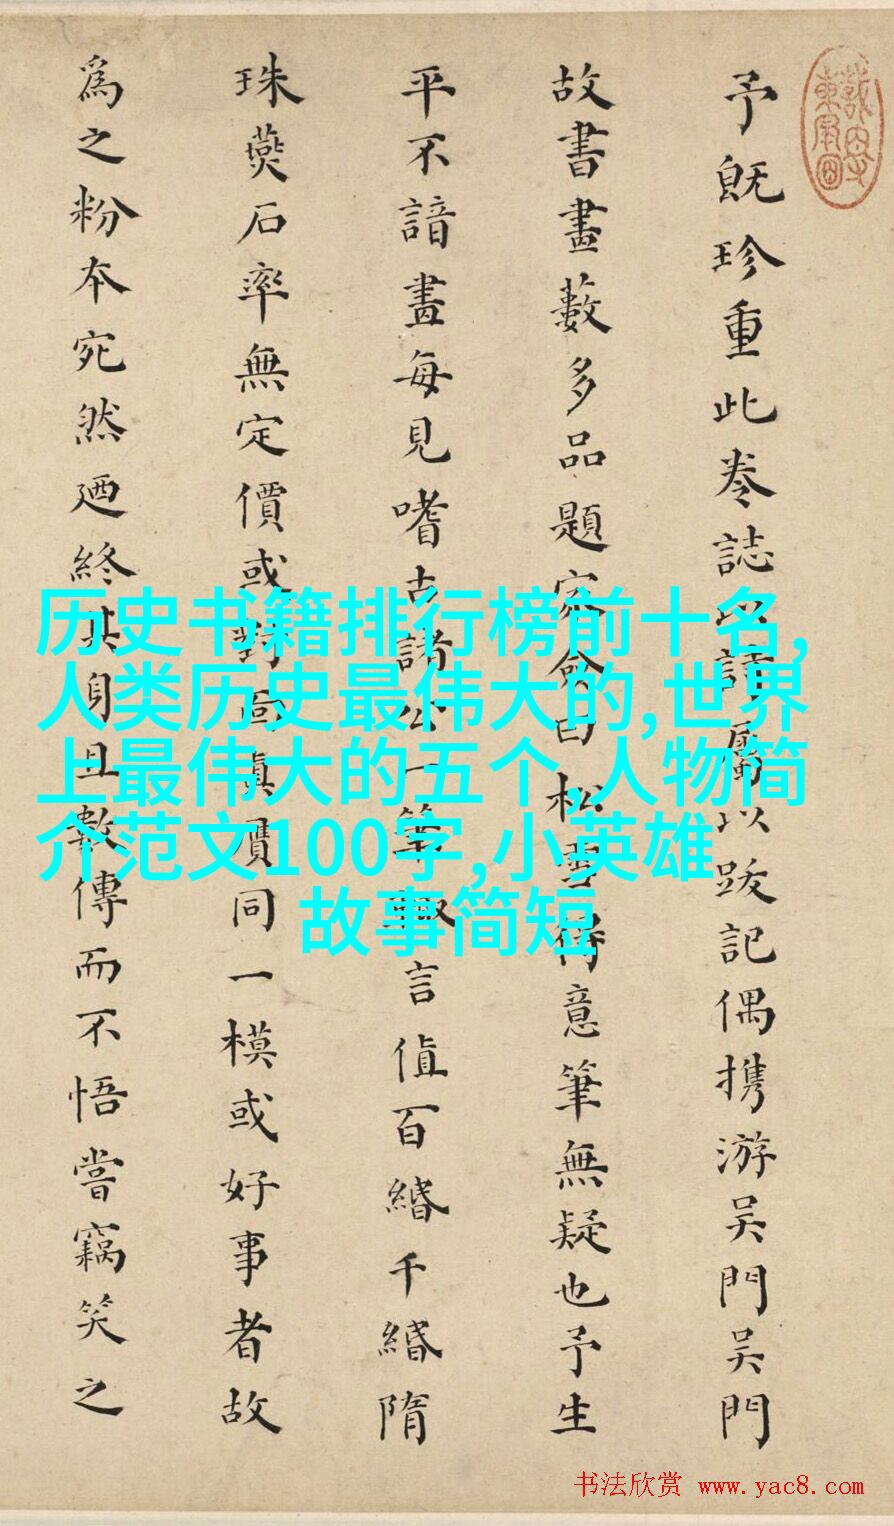 予既珍重此卷誌以詩屬以跋記偶携游吳門吳門
故書畫藪多品題家僉曰松雪得意筆無疑也予生
平不諳畫每見嗜古諸公一筆輙言值百緡千緡隋
珠燕石率無定價或對面真贋同一模或好事者故
爲之粉本宛然迺終其身且數傳而不悟嘗竊笑之
历史书籍排行榜前十名,
人类历史最伟大的,世界
上最伟大的五个,人物简
介范文100字,小英雄
故事简短
书法欣赏 www.yac8.com